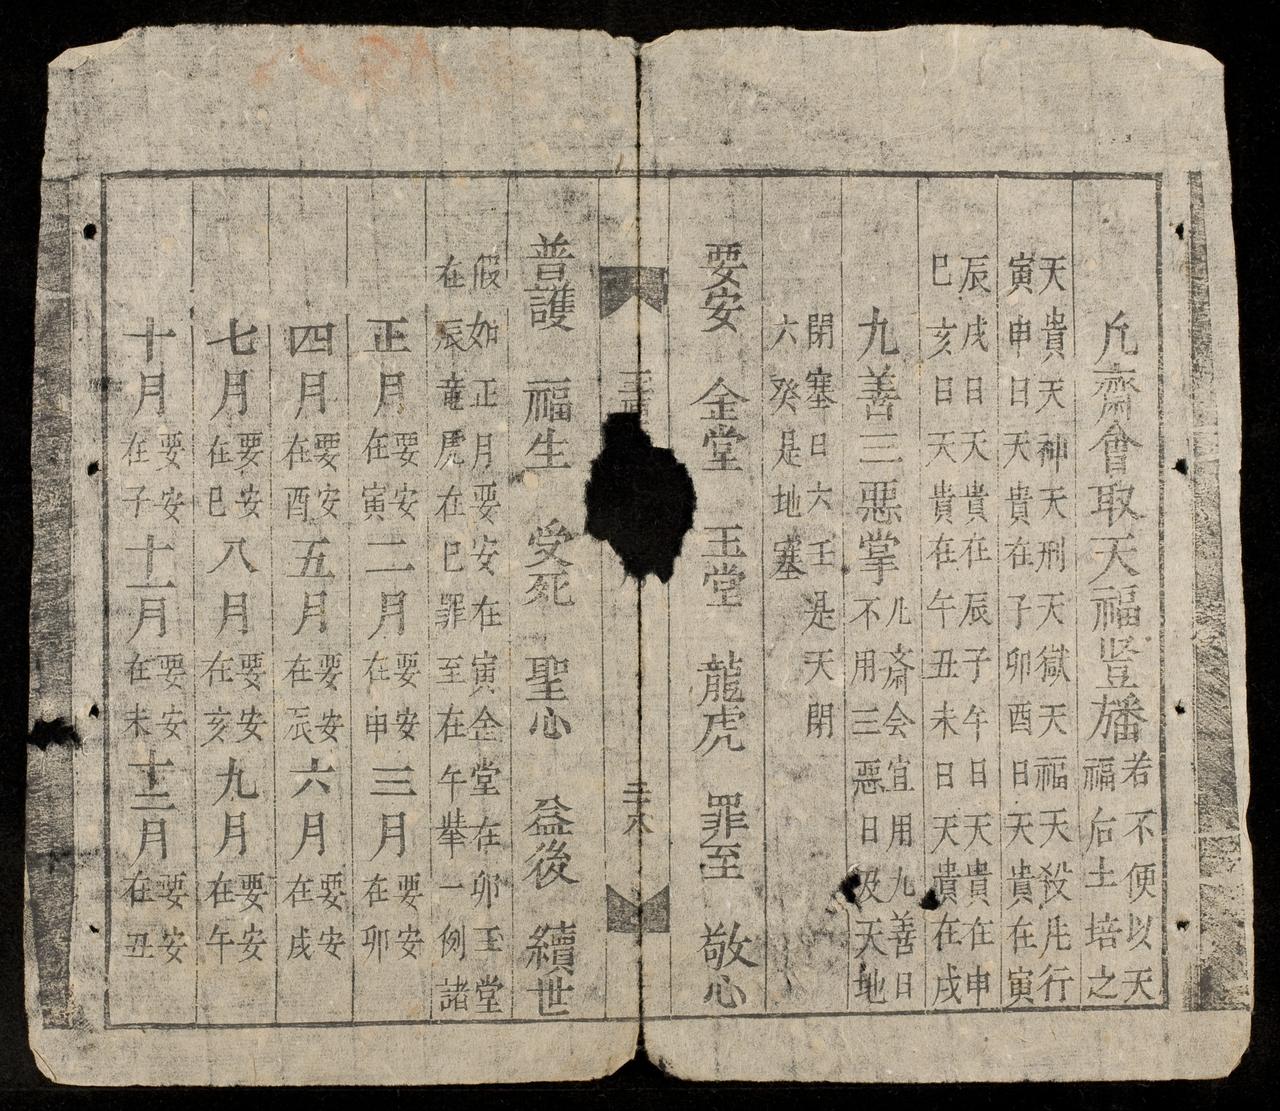 凢齋會取天福豎旛若不便以天
福后土培之
天貴天神天刑天獄天福天殺凢行
寅申日天貴在子卯酉日天貴在寅
辰戌日天貴在辰子午日天貴在申
巳亥日天貴在午丑未日天貴在戌
九善三惡掌凢斎会宜用九善日
不用三惡日及天地
閉塞日六壬是天閉
六癸是地塞
要安 金堂 玉堂 龍虎 罪至 敬心
三
二十八
普護 福生 受死 聖心 益後 續世
假如正月要安在寅金堂在卯玉堂
在辰竜虎在巳罪至在午舉一例諸
正月要安在寅二月要安在申三月要安在卯
四月要安在酉五月要安在辰六月要安在戌
七月要安在巳八月要安在亥九月要安在午
十月要安在子十一月要安在未十二月要安在丑